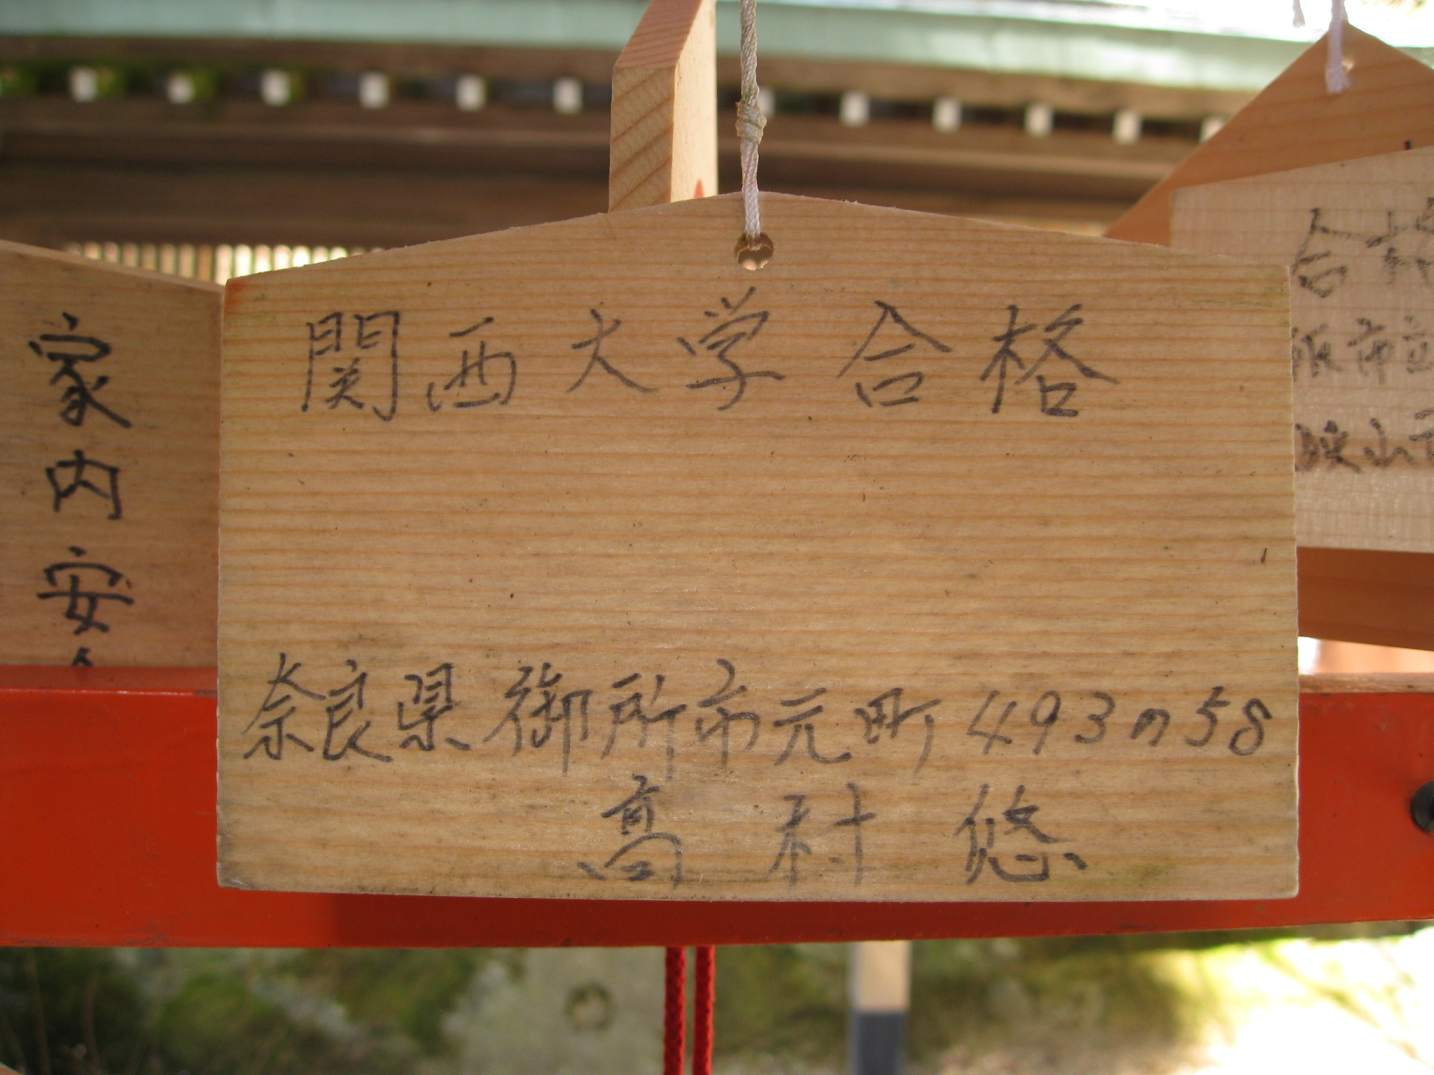 関西大学合格
奈良県御所市元町493の58
髙村悠
家内安
合格
阪市立
狭山市